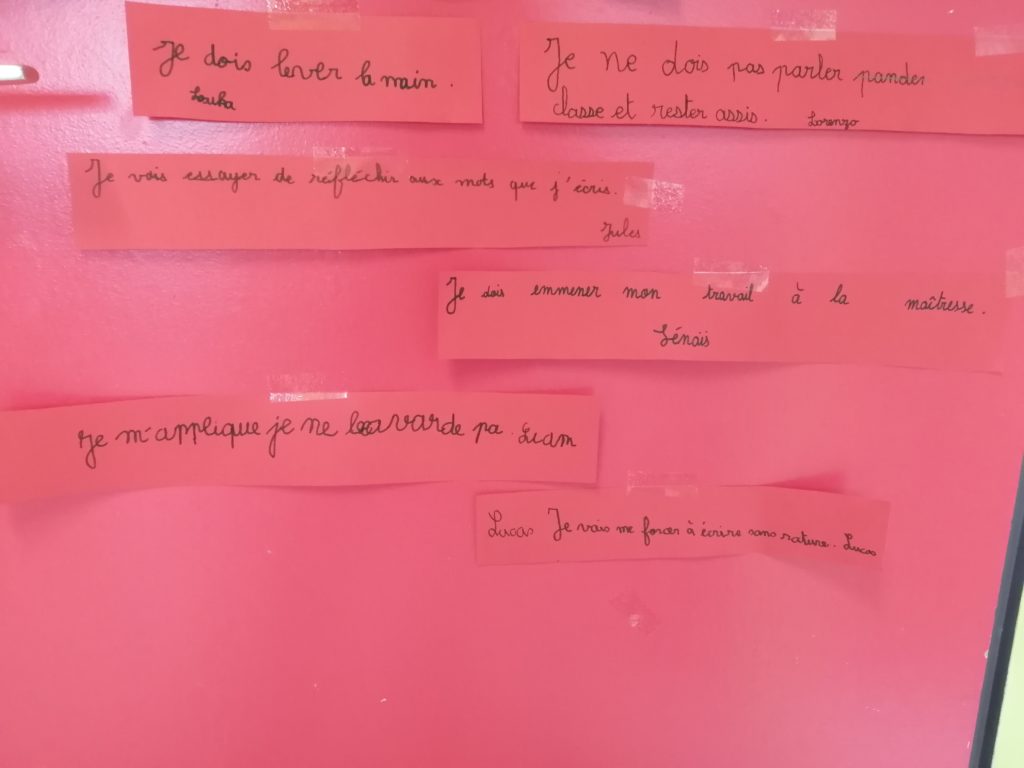 Je dois lever la main.
Louka
Je ne dois pas parler pander
classe et rester assis. Lorenzo
Je vais essayer de réfléchir aux mots que j'écris.
Jules
Je dois emmener mon travail à la maîtresse.
Sénaïs
Je m'applique je ne bavarde pa. Liam
Lucas Je vais me forcer à écrire sans rature. Lucas